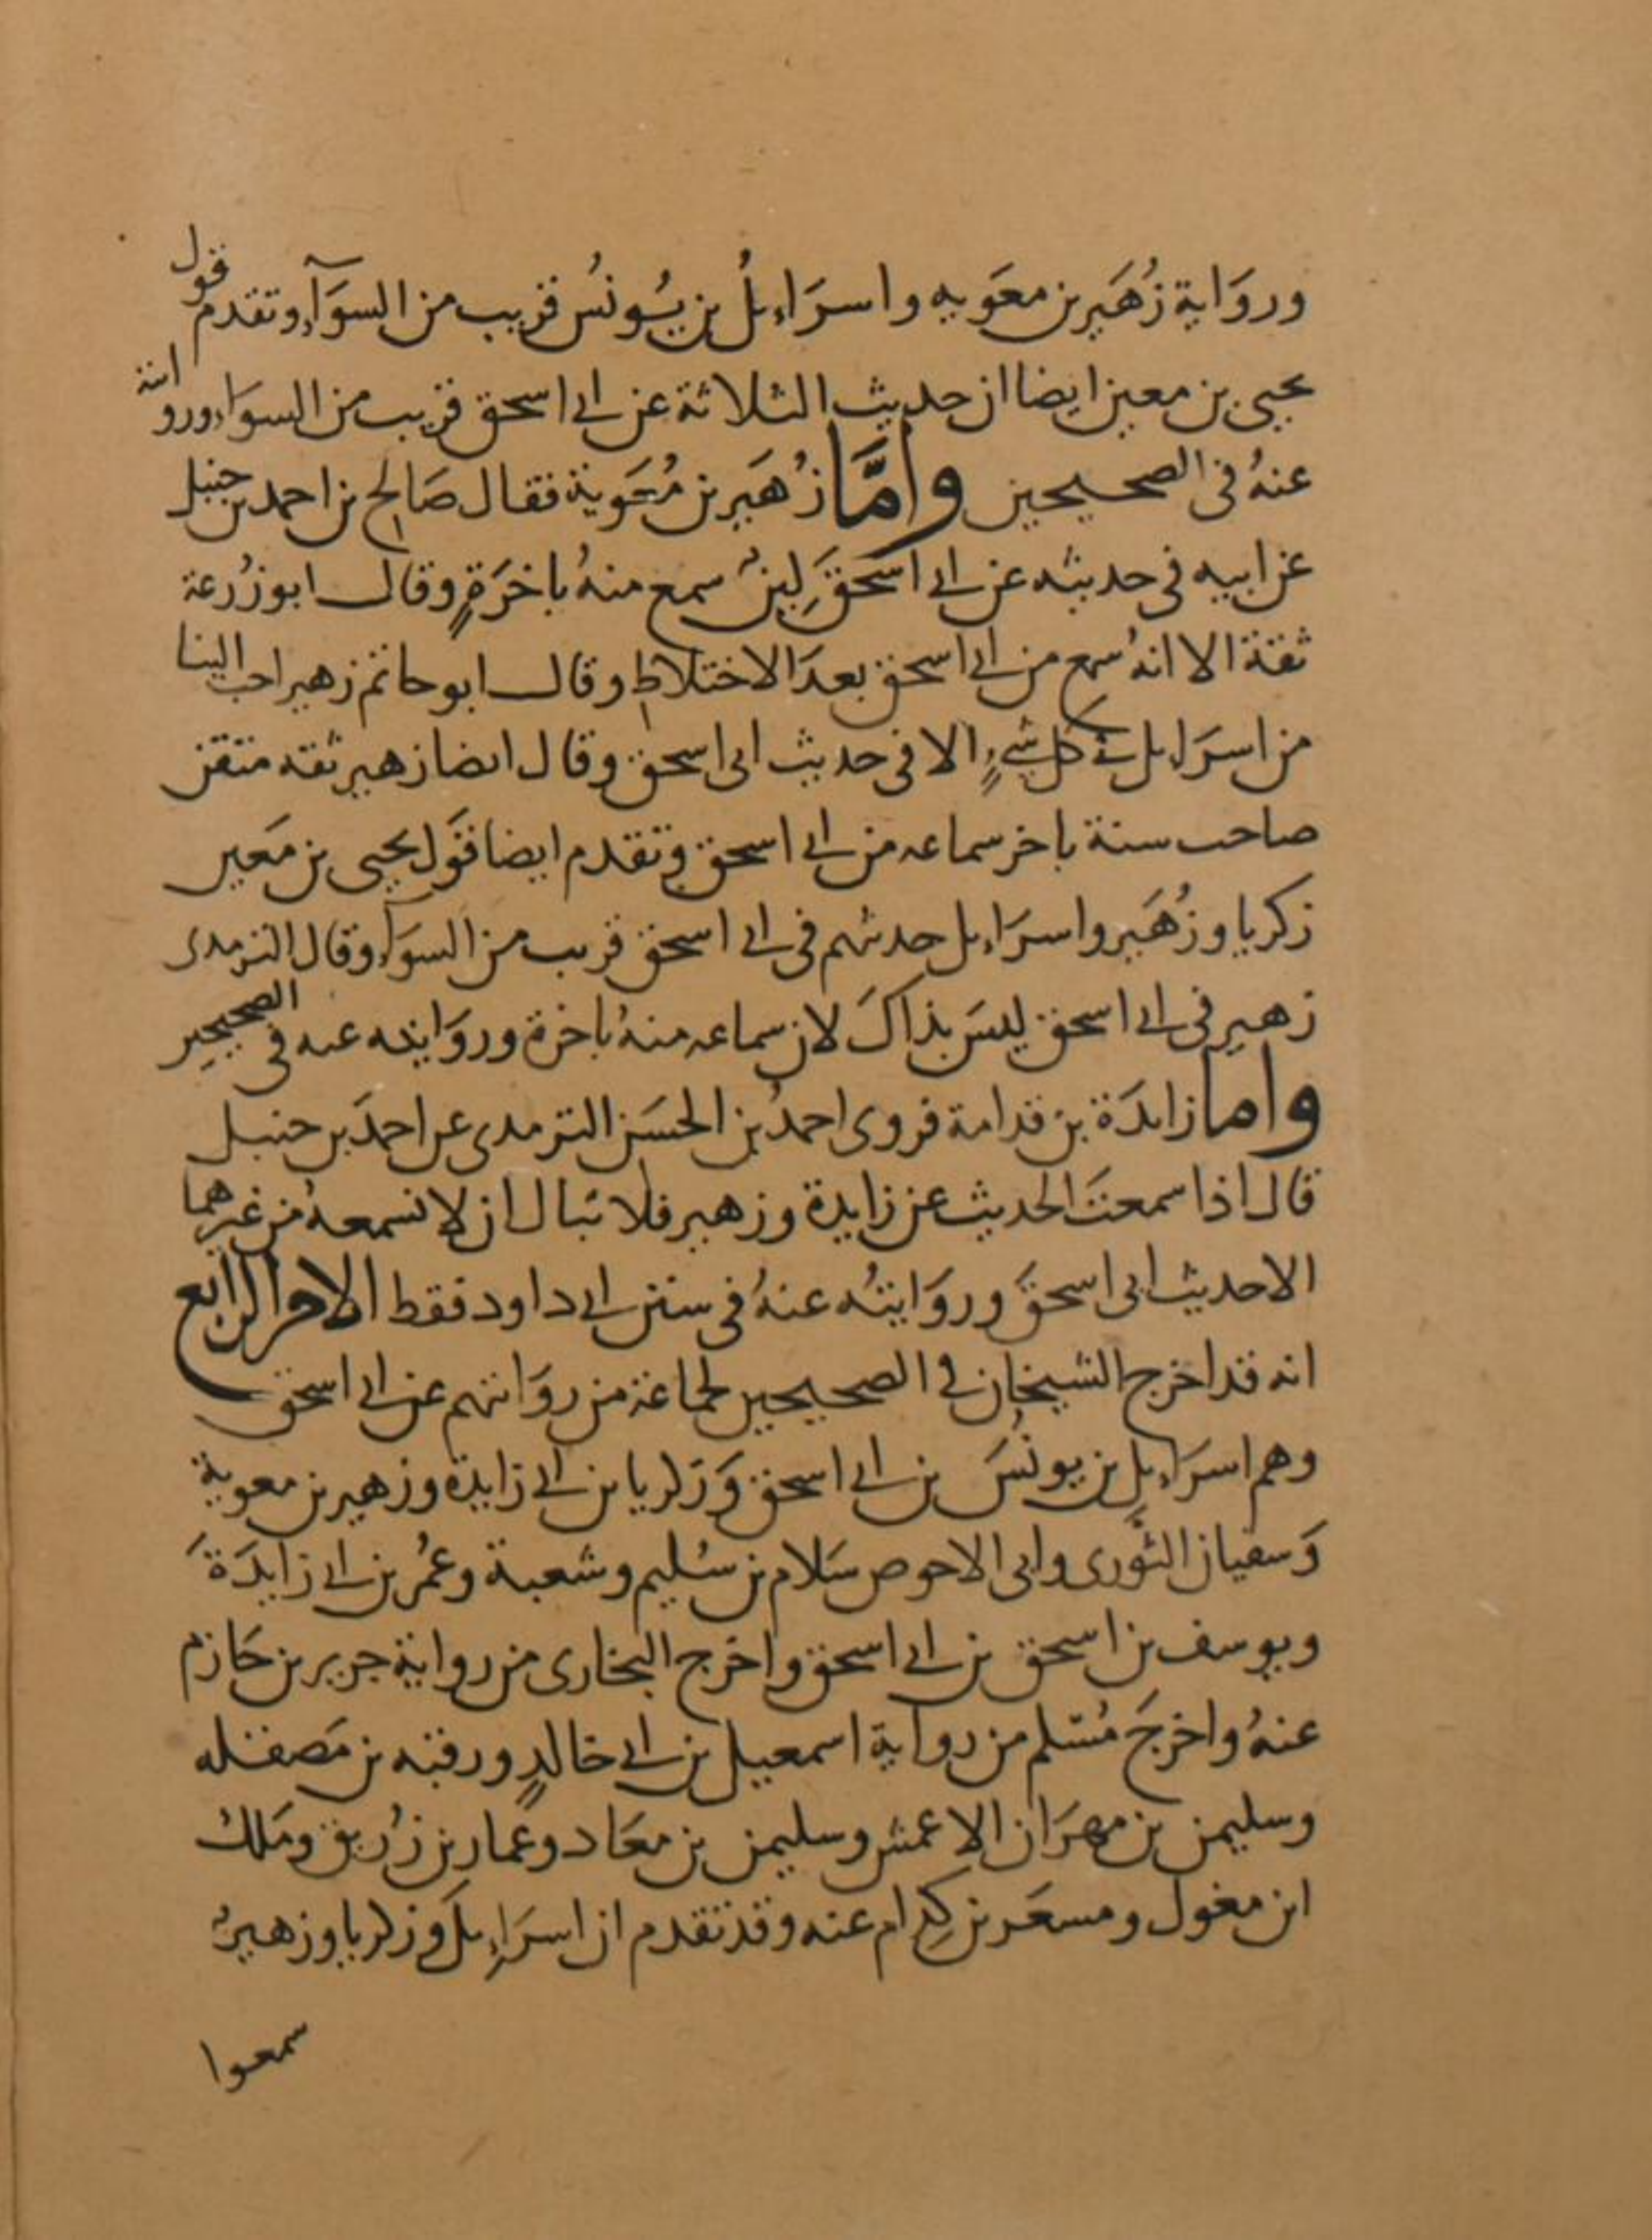 ورواية زهير بن معوية واسراءيل بن يونس قريب من السوآء وتقدم قول
يحيى بن معين ايضا ان حديث الثلاثة عن ابي اسحق قريب من السواء وروايته
عنه في الصحيحين وامّا زهير بن معوية فقال صالح بن احمد بن حنبل
عن ابيه في حديثه عن ابي اسحق لين سمع منه باخرة وقال ابو زرعة
ثقة الا انه سمع من ابي اسحق بعد الاختلاط وقال ابو حاتم زهير احب الينا
من اسراءيل في كل شيء الا في حديث ابي اسحق وقال ايضا زهير ثقه متقن
صاحب سنة باخر سماعه من ابي اسحق وتقدم ايضا قول يحيى بن معين
زكريا وزهير واسراءيل حديثهم في ابي اسحق قريب من السوآء وقال الترمذى
زهير في ابي اسحق ليس بذاك لان سماعه منه باخرة وروايته عنه في الصحيحين
واما زايدة بن قدامة فروى احمد بن الحسن الترمذى عن احمد بن حنبل
قال اذا سمعت الحديث عن زايدة وزهير فلا تبال ان لا تسمعه من غيرهما
الا حديث ابى اسحق وروايته عنه في سنن ابي داود فقط الامر الرابع
انه قد اخرج الشيخان في الصحيحين لجماعة من روايتهم عن ابي اسحق
وهم اسراءيل بن يونس بن ابي اسحق وزكريا بن ابي زايدة وزهير بن معوية
وسفيان الثورى وابى الاحوص سلام بن سليم وشعبة وعمر بن ابي زايدة
ويوسف بن اسحق بن ابي اسحق واخرج البخارى من رواية جرير بن حازم
عنه واخرج مسلم من رواية اسمعيل بن ابي خالد ورقبه بن مصقله
وسليمن بن مهران الاعمش وسليمن بن معاد وعمار بن زريق وملك
ابن مغول ومسعر بن كدام عنه وقد تقدم ان اسراءيل وزكريا وزهير
سمعوا